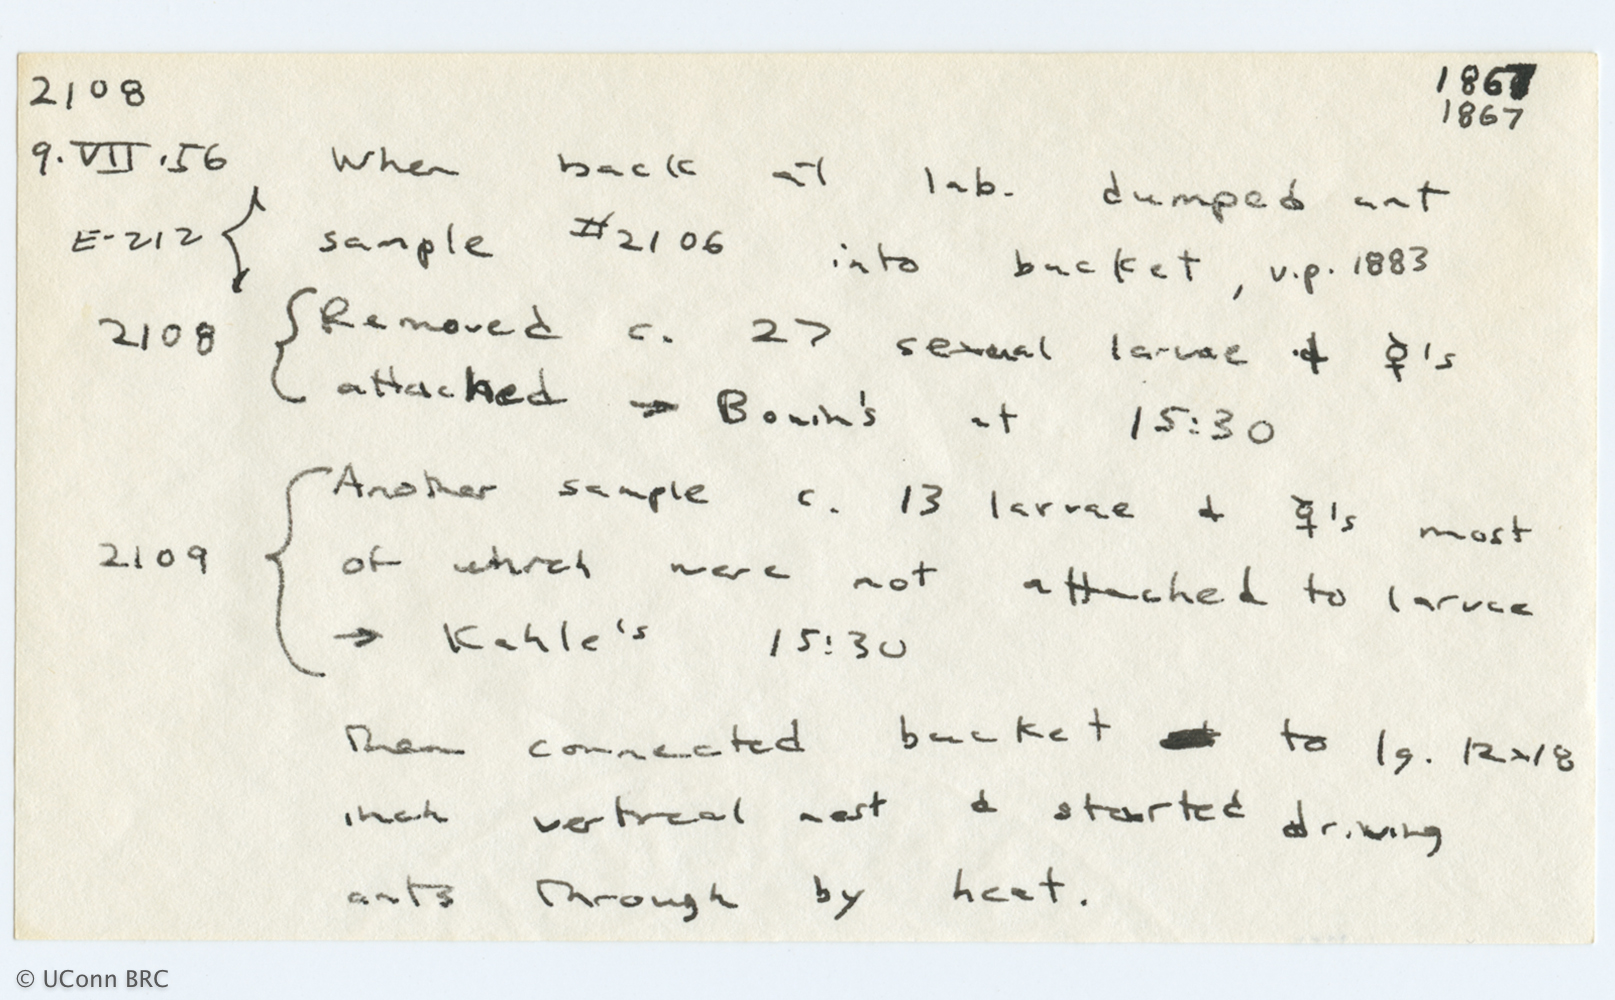 2108 1867
1867
9.VII.56 When back at lab. dumped ant
E-212 { sample #2106 into bucket, v.p. 1883
2108 { Removed c. 27 sexual larvae & ☿'s
attached → Bouin's at 15:30
Another sample c. 13 larvae & ☿'s most
2109 { of which were not attached to larvae
→ Kahle's 15:30
Then connected bucket to lg. 12x18
inch vertical nest & started driving
ants through by heat.
© UConn BRC